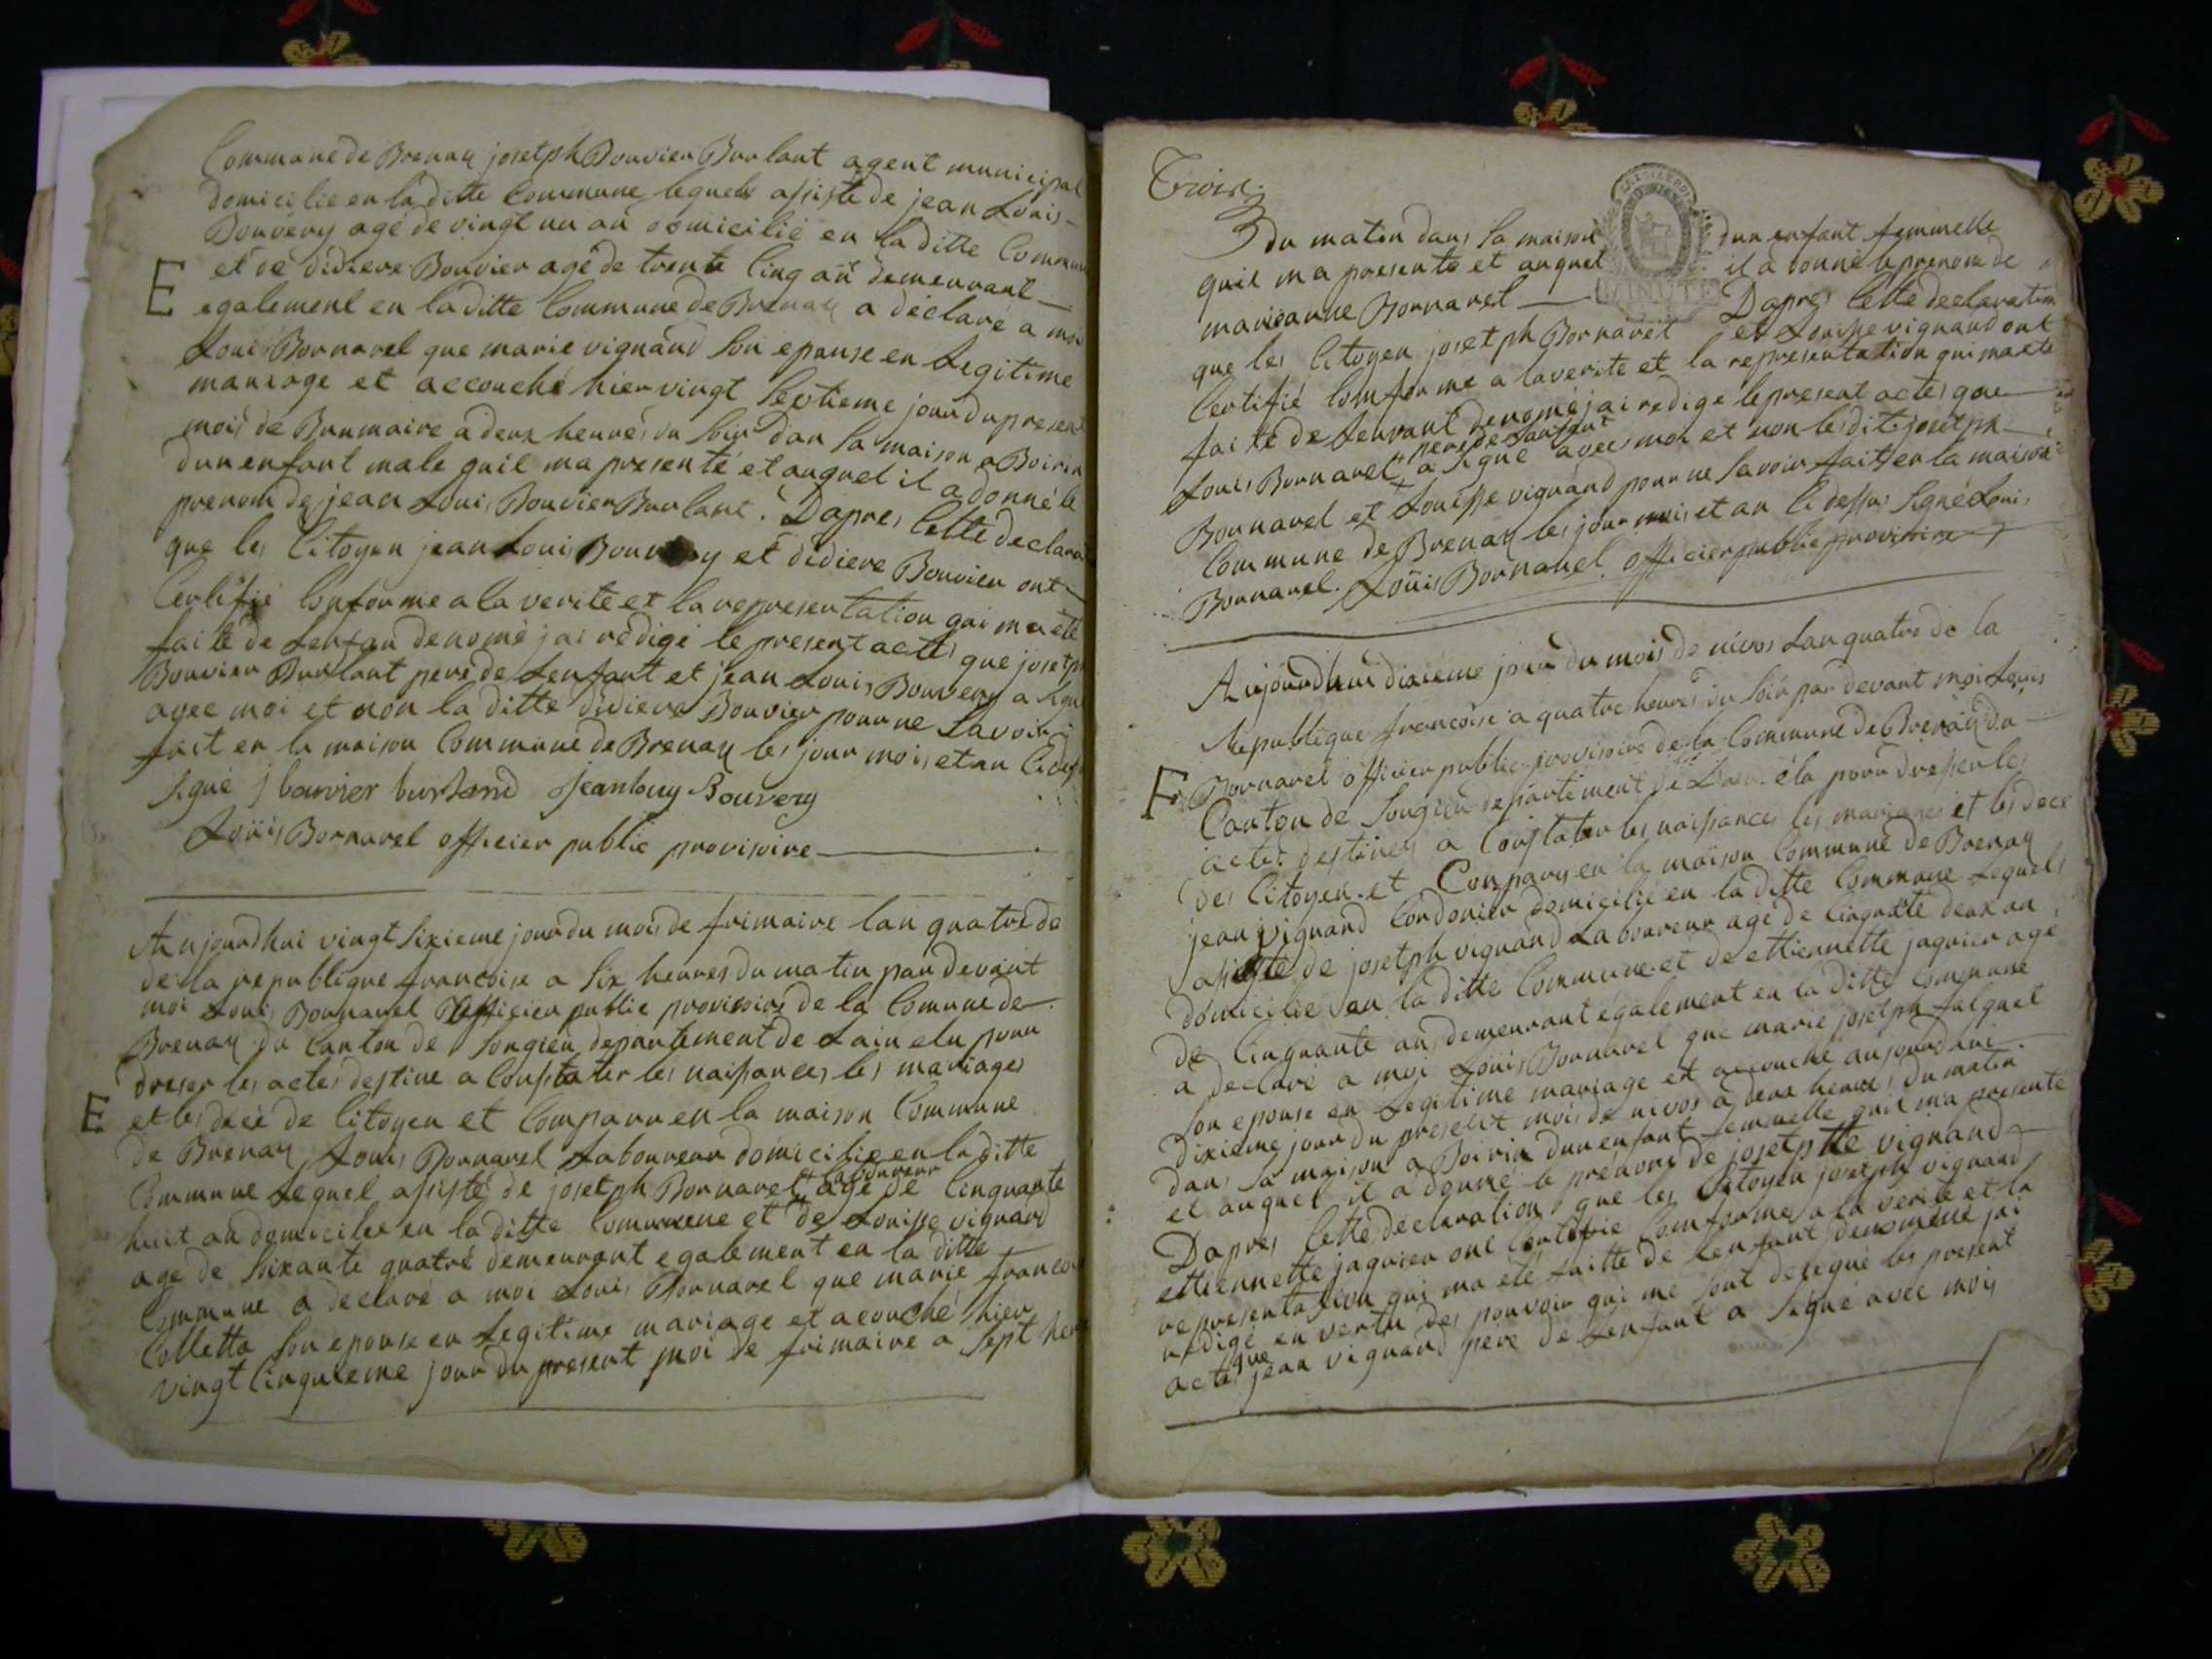 Commune de Brenaz josetph Bouvier Burlant agent municipal
domicilie en la ditte Commune lequels assiste de jean Louis
Bouvery agé de vingt un an domicilié en la ditte Commun
et de didiere Bouvier agé de trente Cinq an demeurant
E
egalement en la ditte Commune de Brenaz a déclaré a moi
Louis Bornarel que marie vignand son epouse en Legitime
mariage et accouché hier vingt Septieme jour du present
mois de Brumaire a deux heures du soir dan sa maison a Boirin
dun enfant male quil ma presenté et auquel il a donné le
prenom de jean Louis Bouvier Burlant. Dapres Cette declarai
que les Citoyen jean Louis Bouvery et didiere Bouvier ont
Certifié Conforme a la verite et la representation qui ma eté
faite de Lenfan denomé jai rédigé le present actes que josetph
Bouvier Burlant pere de Lenfant et jean Louis Bouvery a signé
avec moi et non la ditte didiere Bouvier pour ne savoir
fait en la maison Commune de Brenaz les jour mois et an Cides
signé j bouvier burland jeanlouy Bouvery
Loüis Bornarel officier public provisoire
Aujourdhui vingt sixieme jour du mois de frimaire lan quatre de
de la republique francoise a six heures du matin par devant
moi Louis Bornarel officier public provisoire de la Comune de
Brenaz du Canton de Songieu departement de Lain elu pour
dreser les actes destine a Constater les naissances les mariages
E
et les décé de Citoyen et Comparu en la maison Commune
de Brenaz Louis Bornarel Laboureur domicilie en la ditte
Commune Lequel assisté de josetph Bornarel laboureur agé de Cinquante
huit an domicilie en la ditte Commune et de Louisse vignand
age de soixante quatre demeurant egalement en la ditte
Commune a declaré a moi Louis Bornarel que marie francoi
Colletta son epouse en Legitime mariage et acouché hier
vingt Cinquieme jour du present moi de frimaire a sept heu
Trois
du matin dans sa maison dun enfant femmelle
quil ma presente et auquel il a donné le prenom de
marieanne Bornarel Dapres Cette declaration
MINUTE
que les Citoyen josetph Bornarel et Louisse vignand ont
Certifié Comforme a la verite et la representation qui ma eté
faite de Lenfant denomé jai redige le present actes que
Louis Bornarel pere de Lanfant a signé avec moi et non les dit josetph
Bornarel et Louisse vignand pour ne savoir fait en la maison
Commune de Brenaz les jour mois et an Cidessus signé Louis
Bornarel. Loüis Bornarel officier public provisoire
Aujourdhui dixieme jour du mois de nivos Lan quatre de la
Republique francoise a quatre heures du soir par devant moi Louis
E
Bornarel officier public provisoire de la Commune de Brenaz du
Canton de Songieu departement de Lain élu pour dresser les
actes destinez a Constater les naissances les mariages et les dece
des Citoyen et Comparu en la maison Commune de Brenaz
jean vignand Cordonier domicilié en la ditte Commune Lequels
assisté de josetph vignand Laboureur agé de Cinquate deux an
domicilie en la ditte Commune et de ettiennette jaquier age
de Cinquante an demeurant également en la ditte Commune
a declaré a moi Louis Bornarel que marie josetph falquet
son epouse en Legitime mariage et accouché aujourdhui
dixieme jour du present mois de nivos a deux heures du matin
dans sa maison a Boirin dun enfant femmelle quil ma presente
et auquel il a donné le prenom de josetphtte vignand
Dapres Cette déclaration que les Citoyen josetph vignand
ettiennette jaquier ont Certifie Comforme a la verite et la
representation qui ma eté faitte de Lenfant denomené jai
redigé en vertu des pouvoir qui me sont délégué les present
actes que jean vignand pere de Lenfant a signé avec moi